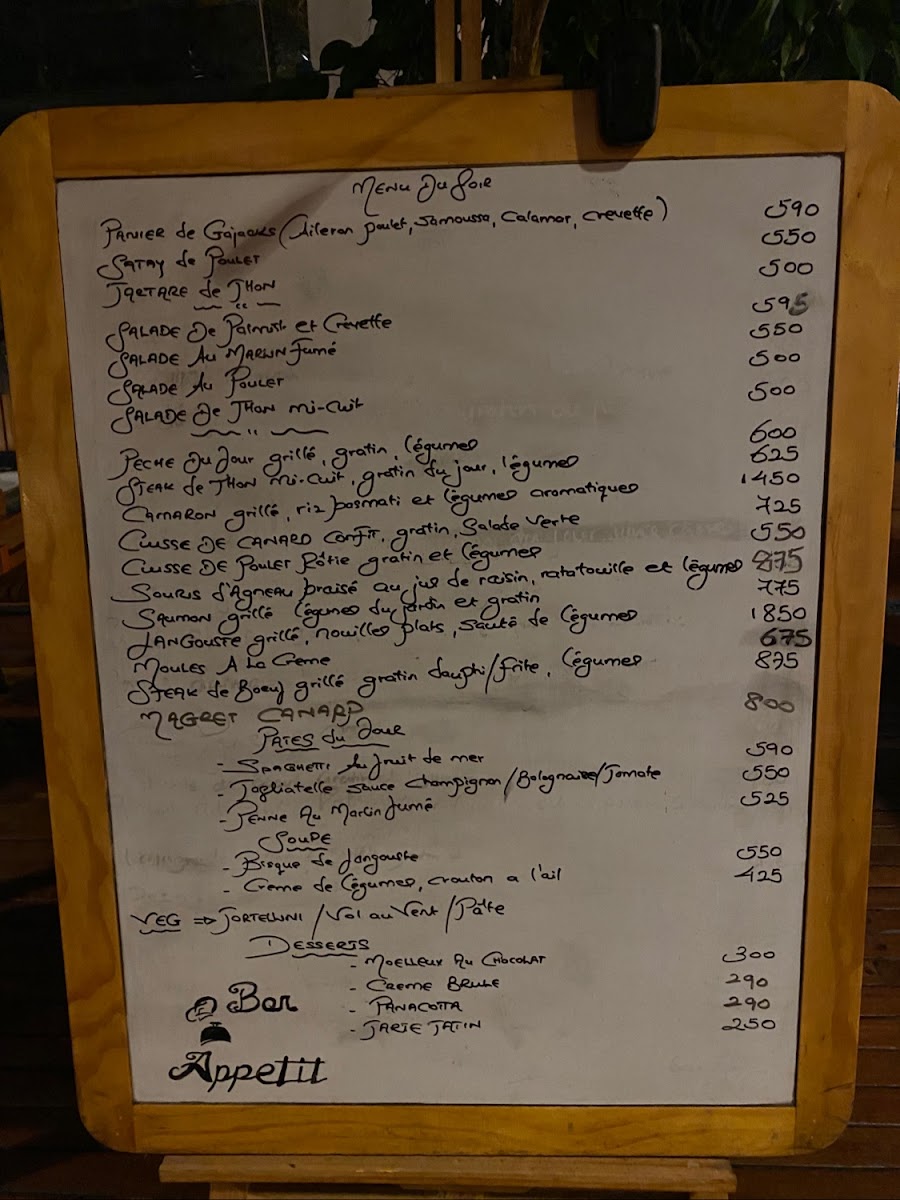 MENU DU SOIR
PANIER de GAJACKS (Aileron poulet, Samoussa, Calamar, Crevette) 590
SATAY de POULET 550
TARTARE de THON 500
SALADE De Palmiste et Crevette 595
SALADE Au MARLIN Fumé 550
SALADE Au POULET 500
SALADE De THON Mi-Cuit 500
PECHE Du Jour grillé, gratin, légumes 600
STEAK de THON Mi-Cuit, gratin du jour, légumes 625
CAMARON grillé, riz basmati et légumes aromatiques 1450
CUISSE DE CANARD CONFIT, gratin, Salade Verte 725
CUISSE DE POULET Rôtie gratin et légumes 550
SOURIS d'AGNEAU braisé au jus de raisin, ratatouille et légumes 875
SAUMON grillé légumes du jardin et gratin 775
LANGOUSTE grillé, nouilles plats, sauté de légumes 1850
MOULES A La Creme 675
STEAK de Boeuf grillé gratin dauphi/frite, légumes 875
MAGRET CANARD 800
PATES du Jour
- SPAGHETTI Au fruit de mer 590
- Tagliatelle sauce Champignon/Bolognaise/Tomate 550
- PENNE Au Marlin fumé 525
SOUPE
- Bisque de Langouste 550
- Crème de légumes, crouton a l'ail 425
VEG => TORTELLINI / Vol au Vent / Pâte
DESSERTS
- MOELLEUX Au CHOCOLAT 300
- CREME BRULE 290
- PANACOTTA 290
- TARTE TATIN 250
Bon
Appetit